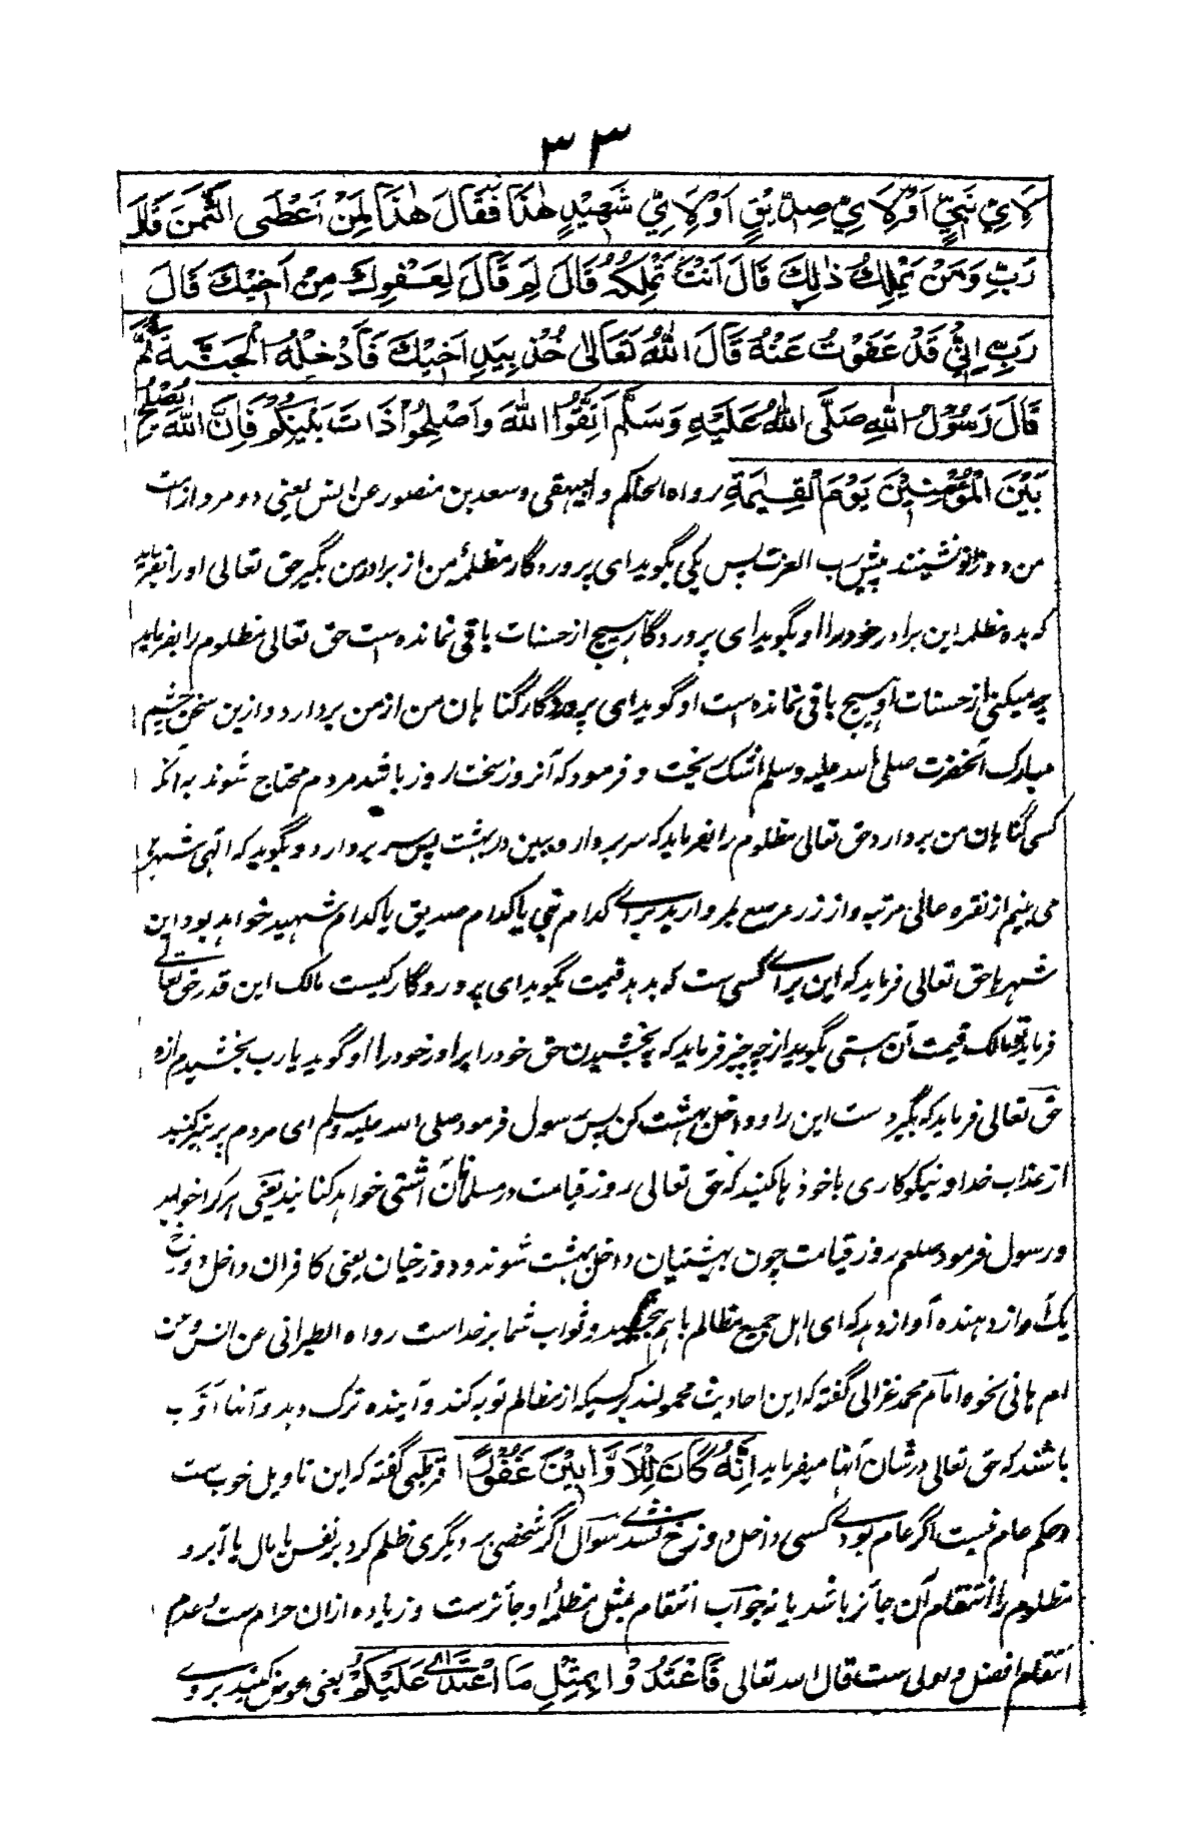 ۳۳
لِاَیِّ نَبِیٍّ اَوْ لِاَیِّ صِدِّیْقٍ اَوْ لِاَیِّ شَهِیْدٍ هٰذَا فَقَالَ هٰذَا لِمَنْ اَعْطَی الثَّمَنَ قَالَ
رَبِّ وَمَنْ یَمْلِكُ ذٰلِكَ قَالَ اَنْتَ تَمْلِكُهٗ قَالَ لِمَ قَالَ لِعَفْوِكَ مِنْ اَخِیْكَ قَالَ
رَبِّ اِنِّیْ قَدْ عَفَوْتُ عَنْهُ قَالَ اللّٰهُ تَعَالٰی خُذْ بِیَدِ اَخِیْكَ فَاَدْخِلْهُ الْجَنَّةَ ثُمَّ
قَالَ رَسُوْلُ اللّٰهِ صَلَّی اللّٰهُ عَلَیْهِ وَسَلَّمَ اتَّقُوا اللّٰهَ وَاَصْلِحُوْا ذَاتَ بَیْنِكُمْ فَاِنَّ اللّٰهَ یُصْلِحُ
بَیْنَ الْمُؤْمِنِیْنَ یَوْمَ الْقِیٰمَةِ رواه الحاکم و البیهقی و سعد بن منصور عن انس یعنی دو مرد از امت
من دو زانو نشینند پیش رب العزت پس یکی بگوید ای پروردگار مظلمه من از برادر من بگیر حق تعالی او را بفرماید
که بده مظلمه این برادر خود را او بگوید ای پروردگار هیچ از حسنات باقی نمانده است حق تعالی مظلوم را بفرماید
چه میکنی از حسنات او هیچ باقی نمانده است او گوید ای پروردگار گناهان من از من بردارد و ازین سخن چشم
مبارک آنحضرت صلی الله علیه وسلم اشک ریخت و فرمود که آنروز سخت روز باشد مردم محتاج شوند به آنکه
کسی گناهان من بردارد حق تعالی مظلوم را بفرماید که سر بردار و ببین در بهشت پس سر بردارد و بگوید که الهی شهرها
می بینم از نقره عالی مرتبه و از زر مرصع بمروارید برای کدام نبی یا کدام صدیق یا کدام شهید خواهد بود این
شهرها حق تعالی فرماید که این برای کسی ست که بدهد قیمت بگوید ای پروردگار کیست مالک این قدر حق تعالی
فرماید تو مالک قیمت آن هستی بگوید از چه چیز فرماید که بخشیدن حق خود را برادر خود را او گوید یا رب بخشیدم ازو
حق تعالی فرماید که بگیر دست این را و داخل بهشت کن پس رسول فرمود صلی الله علیه وسلم ای مردم پرهیز کنید
از عذاب خدا و نیکوکاری با خودها کنید که حق تعالی روز قیامت در مسلمانان آشتی خواهد کنانید یعنی هرکرا خواهد
و رسول فرمود صلعم روز قیامت چون بهشتیان داخل بهشت شوند و دوزخیان یعنی کافران داخل دوزخ
یک آواز دهنده آواز دهد که ای اهل جمیع مظالم باهم بخشید و ثواب شما بر خداست رواه الطبرانی عن انس و عن
ام هانی نحوه امام محمد غزالی گفته که این احادیث محمولند بر کسیکه از مظالم توبه کند و آینده ترک دهد و آنها اوّاب
باشند که حق تعالی در شان آنها میفرماید اِنَّهٗ كَانَ لِلْاَوَّابِیْنَ غَفُوْرًا قرطبی گفته که این تاویل خوب ست
و حکم عام نیست اگر عام بودی کسی داخل دوزخ نشدی سوال اگر شخصی بر دیگری ظلم کرد بر نفس یا مال یا آبرو
مظلوم را انتقام آن جائز باشد یا نه جواب انتقام بمثل مظلمه او جائز ست و زیاده ازان حرام ست و عدم
انتقام افضل و اولی ست قال الله تعالی فَاعْتَدُوْا بِمِثْلِ مَا اعْتَدٰی عَلَیْكُمْ یعنی عوض کنید بر وی